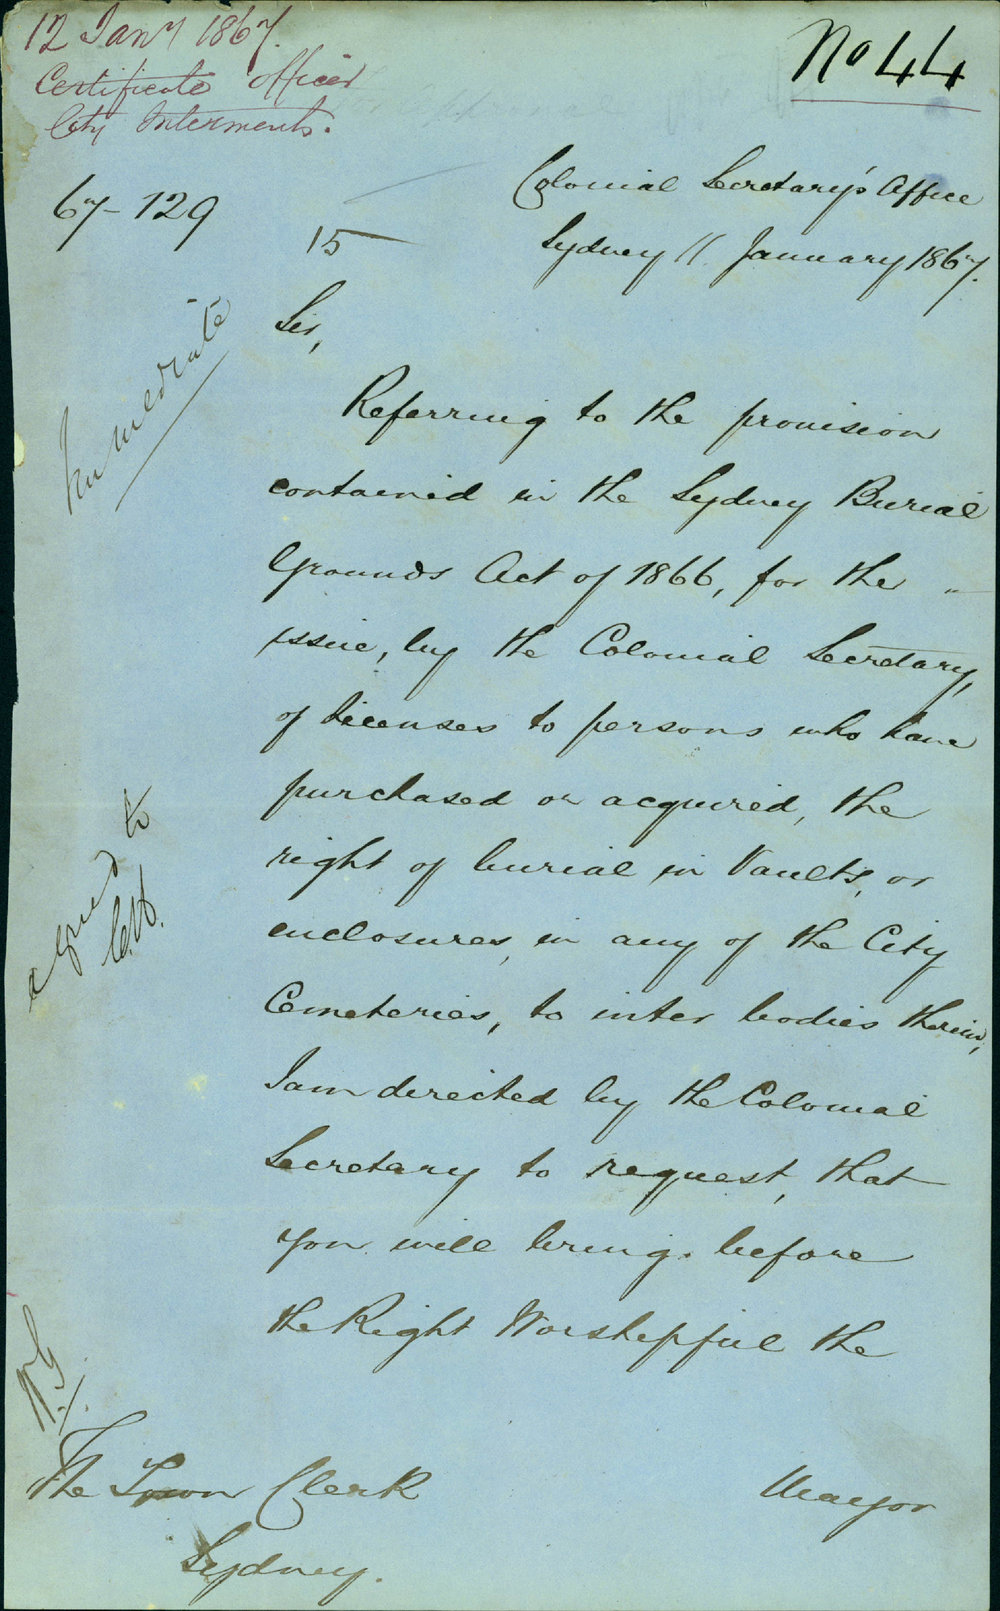 12 Jany 1867.
Certificate Officer
City Interments.
No 44
67-129
15
Colonial Secretary's Office
Sydney 11 January 1867.
Immediate
Sir,
Referring to the provision
contained in the Sydney Burial
Grounds Act of 1866, for the
issue, by the Colonial Secretary,
of licenses to persons who have
purchased or acquired, the
right of burial in Vaults, or
enclosures, in any of the City
Cemeteries, to inter bodies therein,
I am directed by the Colonial
Secretary to request, that
you will bring before
the Right Worshipful the
Mayor
agreed to
The Town Clerk
Sydney.